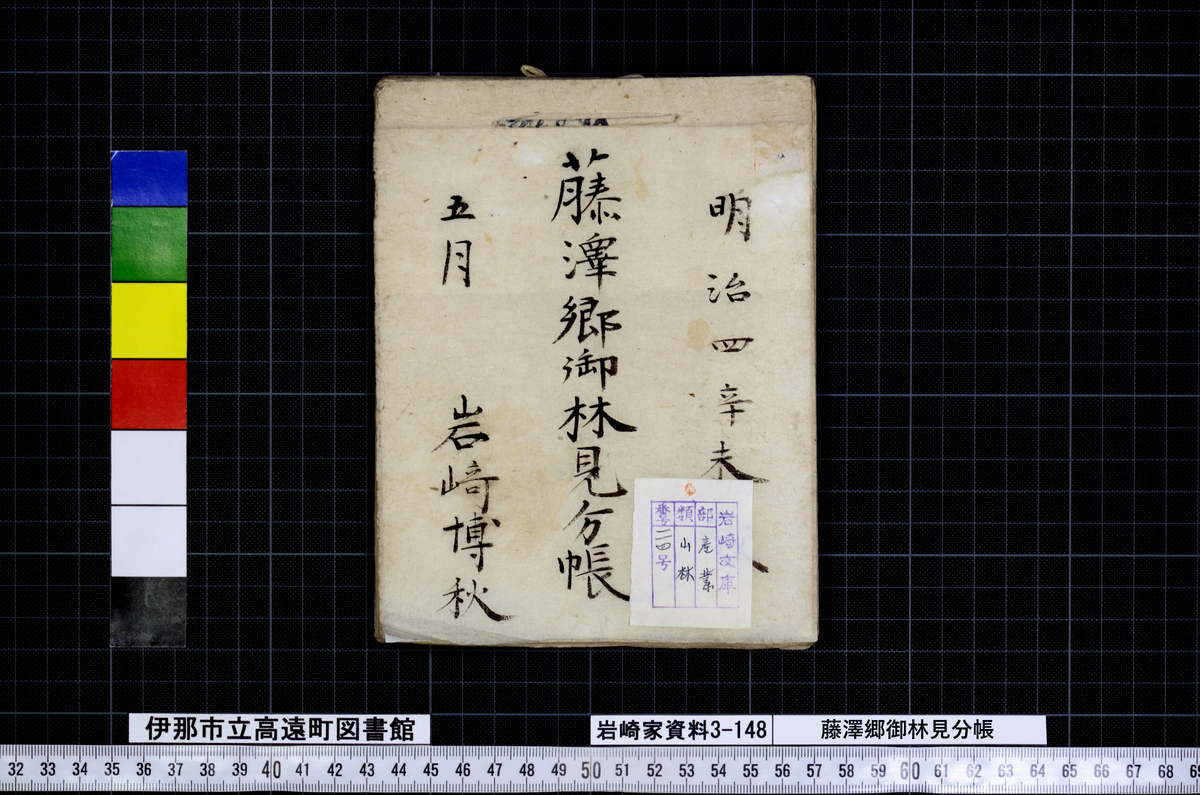 明治四辛未
藤澤郷御林見分帳
五月
岩﨑博秋
岩崎文庫
部 産業
類 山林
番号 二四号
伊那市立高遠町図書館
岩崎家資料3-148
藤澤郷御林見分帳
32 33 34 35 36 37 38 39 40 41 42 43 44 45 46 47 48 49 50 51 52 53 54 55 56 57 58 59 60 61 62 63 64 65 66 67 68